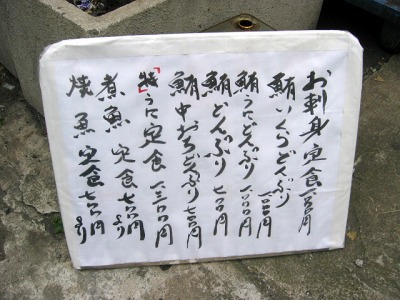 お刺身定食一三〇〇円
鮪いくらどんぶり一〇〇〇円
鮪うにどんぶり一〇〇〇円
鮪どんぶり七〇〇円
鮪中おちどんぶり七〇〇円
「特」うに定食一三〇〇円
煮魚定食七〇〇円より
焼魚定食七〇〇円より